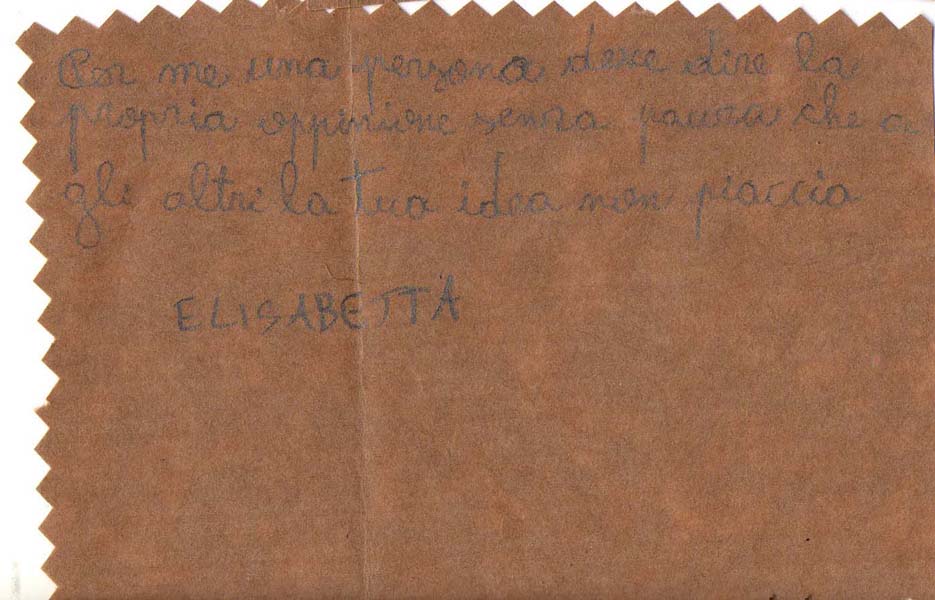 Per me una persona deve dire la
propria oppinione senza paura che a
gli altri la tua idea non piaccia
ELISABETTA